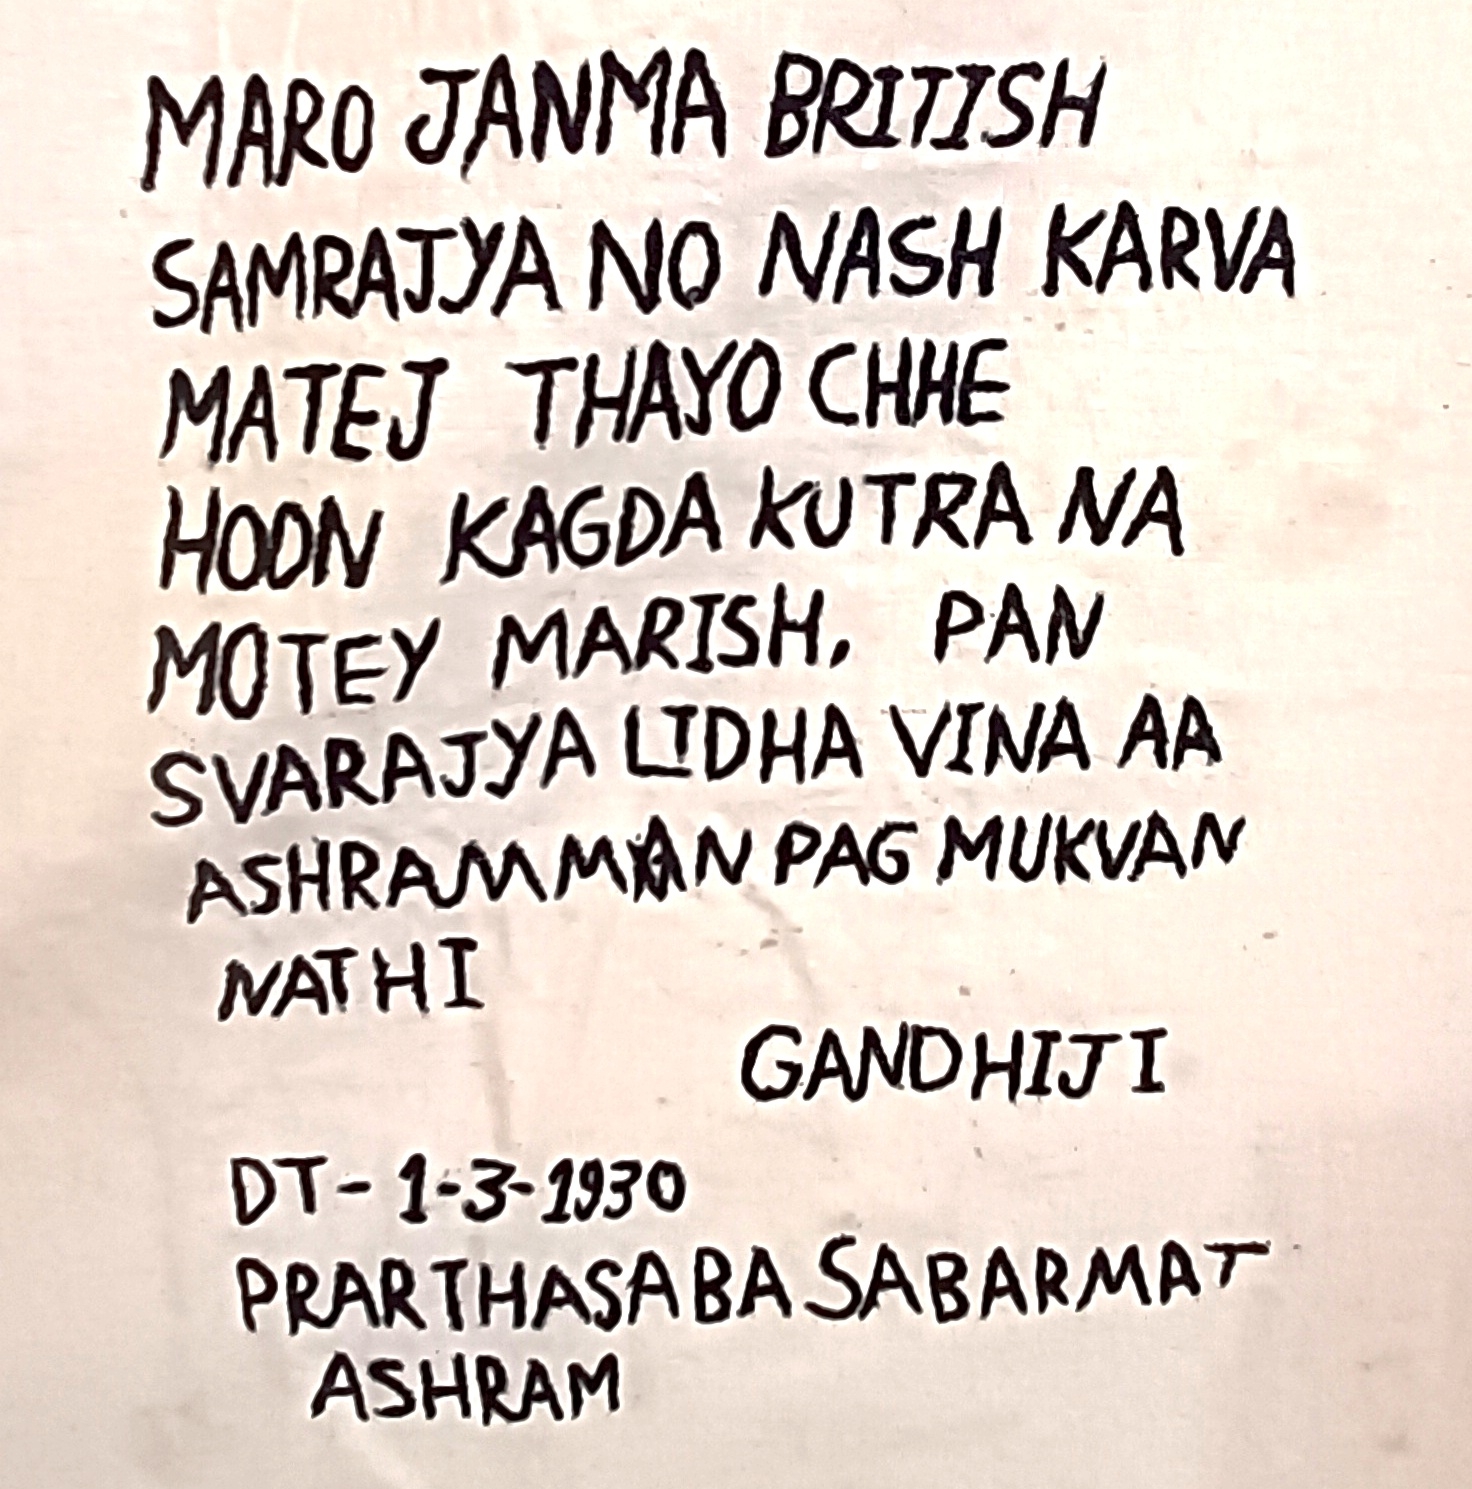 MARO JANMA BRITISH
SAMRAJYA NO NASH KARVA
MATEJ THAYO CHHE
HOON KAGDA KUTRA NA
MOTEY MARISH, PAN
SVARAJYA LIDHA VINA AA
ASHRAMMAN PAG MUKVAN
NATHI
GANDHIJI
DT- 1-3-1930
PRARTHASABA SABARMAT
ASHRAM